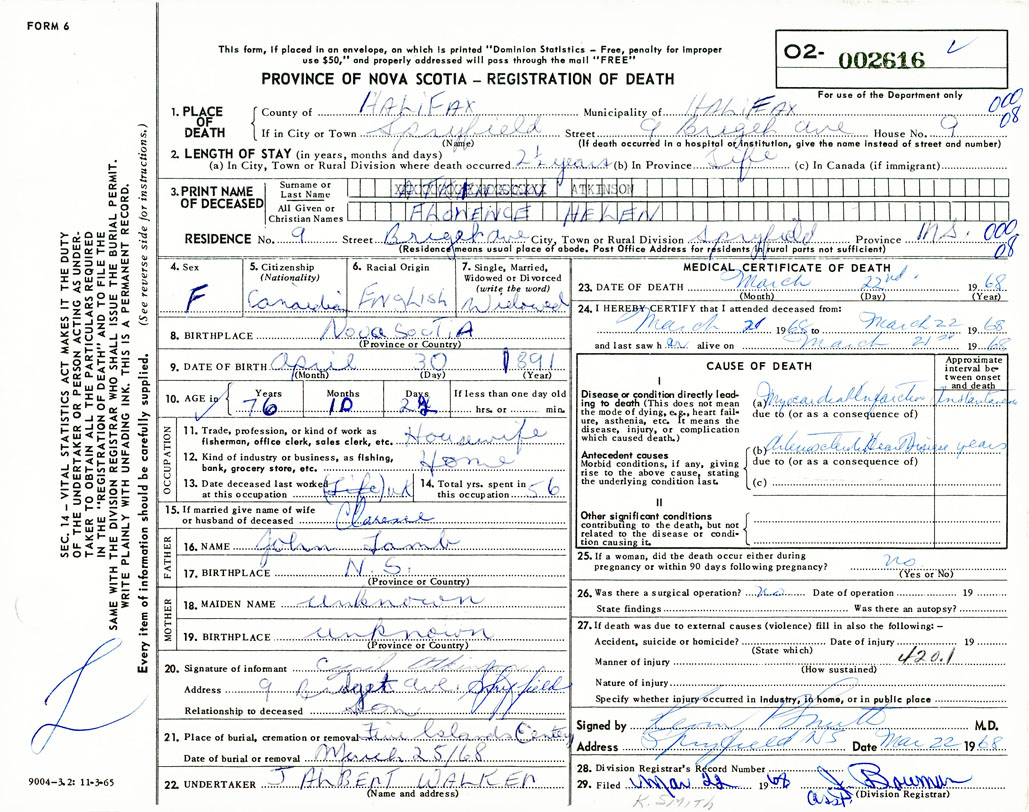 FORM 6
This form, if placed in an envelope, on which is printed "Dominion Statistics – Free, penalty for improper
use $50," and properly addressed will pass through the mail "FREE"
PROVINCE OF NOVA SCOTIA – REGISTRATION OF DEATH
O2- 002616
For use of the Department only
000
08
1. PLACE OF DEATH
County of HALIFAX Municipality of HALIFAX
If in City or Town Spryfield Street 9 Brigeh Ave House No. 9
(Name) (If death occurred in a hospital or institution, give the name instead of street and number)
2. LENGTH OF STAY (in years, months and days)
(a) In City, Town or Rural Division where death occurred 2½ years (b) In Province Life (c) In Canada (if immigrant)
3. PRINT NAME OF DECEASED
Surname or Last Name ATKINSON
All Given or Christian Names FLORENCE HELEN
RESIDENCE No. 9 Street Brigeh ave City, Town or Rural Division Spryfield Province N.S. 000
08
(Residence means usual place of abode. Post Office Address for residents in rural parts not sufficient)
4. Sex F
5. Citizenship (Nationality) Canadian
6. Racial Origin English
7. Single, Married, Widowed or Divorced (write the word) Widowed
8. BIRTHPLACE Nova Scotia
(Province or Country)
9. DATE OF BIRTH April 30 1891
(Month) (Day) (Year)
10. AGE in Years 76 Months 10 Days 22 If less than one day old hrs. or min.
OCCUPATION
11. Trade, profession, or kind of work as fisherman, office clerk, sales clerk, etc. Housewife
12. Kind of industry or business, as fishing, bank, grocery store, etc. Home
13. Date deceased last worked at this occupation (Life)
14. Total yrs. spent in this occupation 56
15. If married give name of wife or husband of deceased Clarence
FATHER
16. NAME John Lamb
17. BIRTHPLACE N.S.
(Province or Country)
MOTHER
18. MAIDEN NAME unknown
19. BIRTHPLACE unknown
(Province or Country)
20. Signature of informant Cyril Atkinson
Address 9 Bridget ave, Spryfield
Relationship to deceased Son
21. Place of burial, cremation or removal Five Islands
Date of burial or removal March 25/68
22. UNDERTAKER J ALBERT WALKER
(Name and address)
MEDICAL CERTIFICATE OF DEATH
23. DATE OF DEATH March 22nd 1968
(Month) (Day) (Year)
24. I HEREBY CERTIFY that I attended deceased from:
March 21 1968 to March 22 1968
and last saw her alive on March 21st 1968
CAUSE OF DEATH
Approximate interval between onset and death
I
Disease or condition directly leading to death (This does not mean the mode of dying, e.g., heart failure, asthenia, etc. It means the disease, injury, or complication which caused death.)
(a) Myocardial Infarction
due to (or as a consequence of)
Antecedent causes
Morbid conditions, if any, giving rise to the above cause, stating the underlying condition last.
(b) Heart Disease years
due to (or as a consequence of)
(c)
II
Other significant conditions contributing to the death, but not related to the disease or condition causing it.
25. If a woman, did the death occur either during pregnancy or within 90 days following pregnancy? no
(Yes or No)
26. Was there a surgical operation? No Date of operation 19
State findings Was there an autopsy?
27. If death was due to external causes (violence) fill in also the following: –
Accident, suicide or homicide? Date of injury 19
(State which)
Manner of injury 420.1
(How sustained)
Nature of injury
Specify whether injury occurred in Industry, in home, or in public place
Signed by M.D.
Address Spryfield NS Date Mar 22 1968
28. Division Registrar's Record Number
29. Filed Mar 22 1968 J. Bowman
(Division Registrar)
K. SMITH
SEC. 14 – VITAL STATISTICS ACT MAKES IT THE DUTY
OF THE UNDERTAKER OR PERSON ACTING AS UNDER-
TAKER TO OBTAIN ALL THE PARTICULARS REQUIRED
IN THE "REGISTRATION OF DEATH" AND TO FILE THE
SAME WITH THE DIVISION REGISTRAR WHO SHALL ISSUE THE BURIAL PERMIT.
WRITE PLAINLY WITH UNFADING INK. THIS IS A PERMANENT RECORD.
Every item of information should be carefully supplied. (See reverse side for instructions.)
9004-3.2: 11-3-65